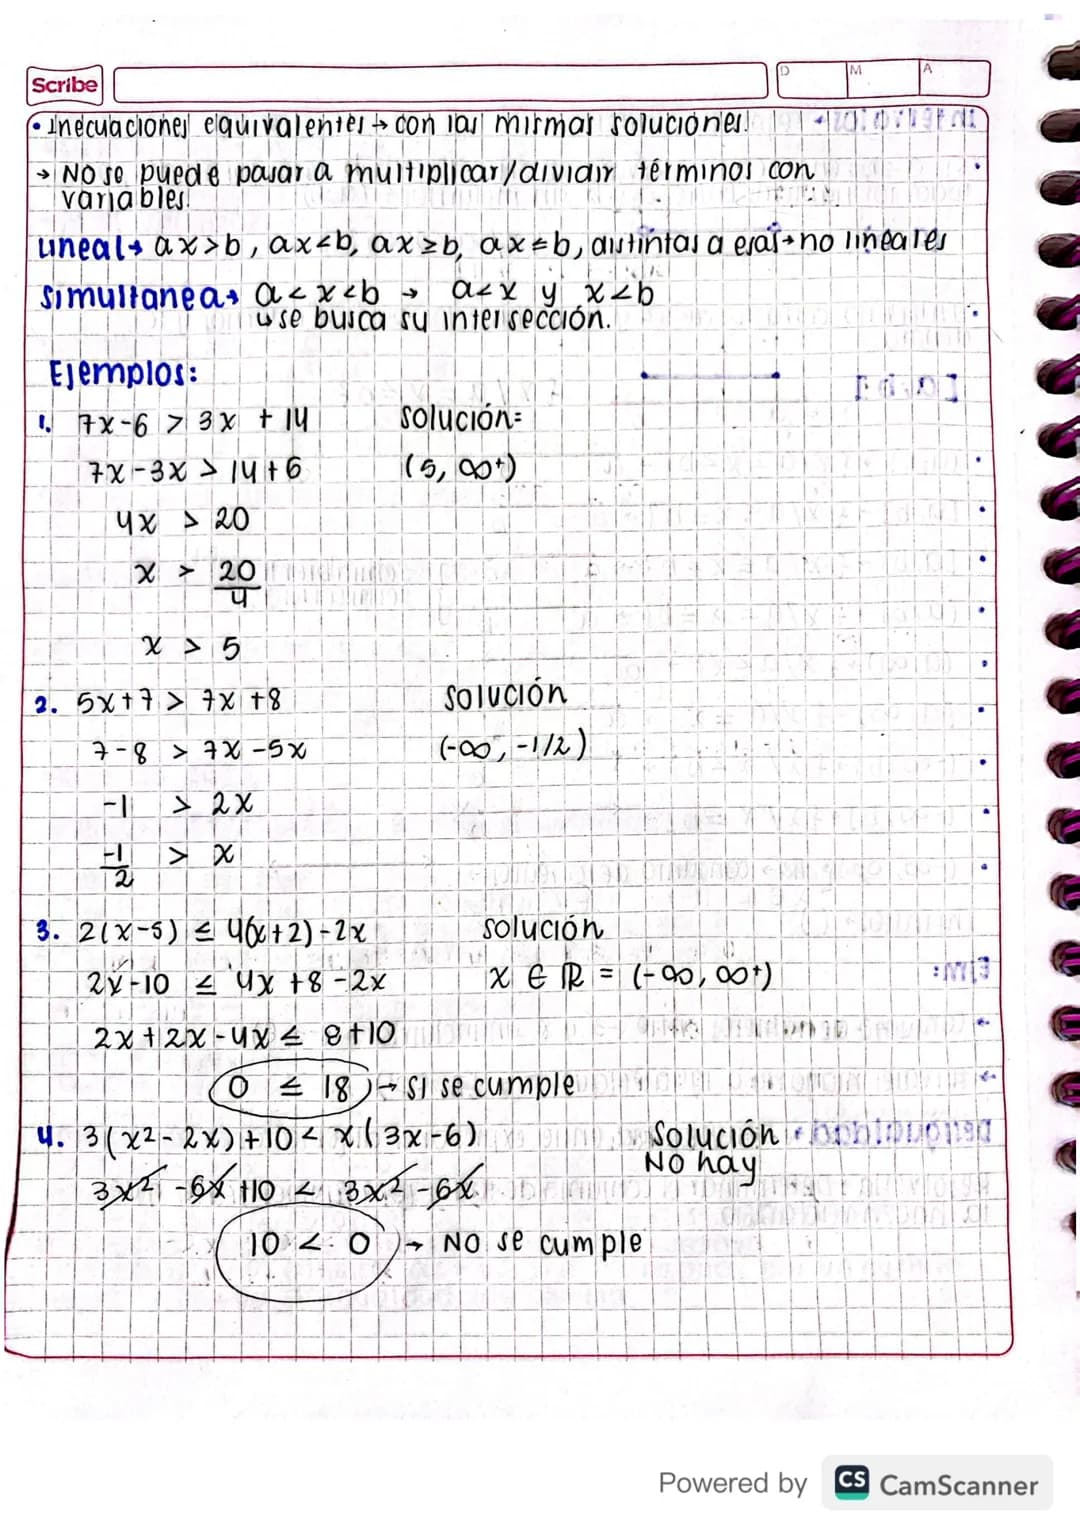 Scribe
D M A
• Inecuaciones equivalentes → con las mismas soluciones.
→ No se puede pasar a multiplicar/dividir términos con
variables.
Lineal → ax>b, ax<b, ax≥b, ax≤b, distintas a esas → no lineares
Simultanea → a<x<b → a<x y x<b
↳ se busca su intersección.
Ejemplos:
1. 7x-6 > 3x + 14 solución:
7x-3x > 14+6 (5, ∞⁺)
4x > 20
x > 20/4
x > 5
2. 5x+7 > 7x+8 solución
7-8 > 7x-5x (-∞, -1/2)
-1 > 2x
-1/2 > x
3. 2(x-5) ≤ 4(x+2)-2x solución
2x-10 ≤ 4x+8-2x x ∈ ℝ = (-∞, ∞⁺)
2x+2x-4x ≤ 8+10
0 ≤ 18 → si se cumple
4. 3(x²-2x)+10 < x(3x-6) Solución
No hay
3x²-6x+10 < 3x²-6x
10 < 0 → No se cumple
Powered by CS CamScanner